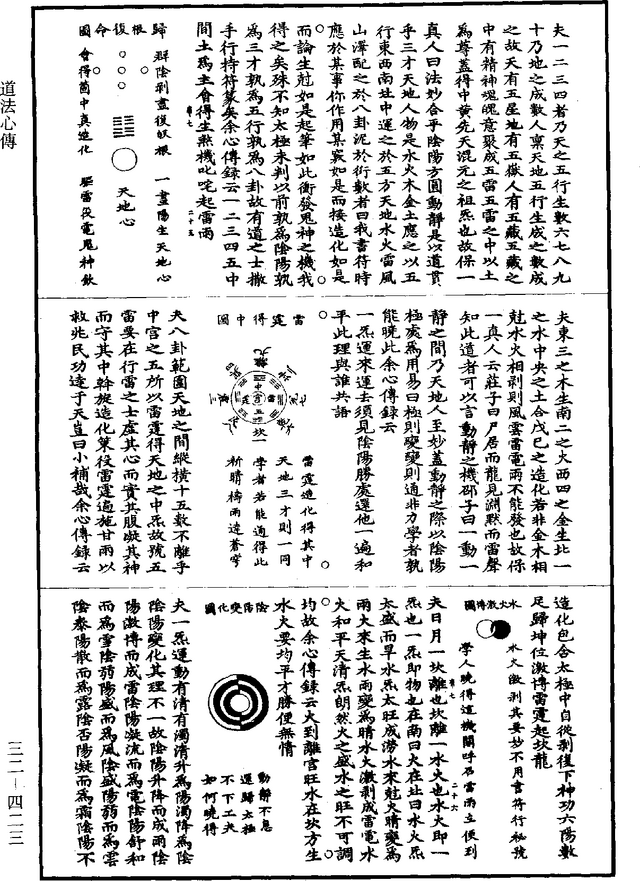 道法心傳
三二—四二三
夫一二三四者乃天之五行生數六七八九
十乃地之成數人稟天地五行生成之數成
之故天有五星地有五嶽人有五藏五藏之
中有精神魂魄意聚成五雷五雷之中以土
為尊蓋得中黃先天混元之祖炁也故保一
真人曰法妙合乎陰陽方圓動靜是以道貫
乎三才天地人物是水火木金土應之以五
行東西南北中運之於五方天地水火雷風
山澤配之於八卦泥於術數者曰我書符時
應於某事你作用某竅如是而接造化如是
而論生尅如是起筆如此衝發鬼神之機我
得之矣殊不知太極未判以前孰為陰陽孰
為三才孰為五行孰為八卦故有道之士撒
手行持符篆矣余心傳錄云一二三四五中
間土為主會得生煞機叱咤起雷雨
歸根復命圖
群陰剝盡復歸根
一畫陽生天地心
天地心
會得箇中真造化
驅雷役電鬼神欽
夫東三之木生南二之火西四之金生北一
之水中央之土合戊己之造化若非金木相
尅水火相剝則風雲雷電雨不能發也故保
一真人云莊子曰尸居而龍見淵默而雷聲
知此道者可以言動靜之機邵子曰一動一
靜之間乃天地人至妙蓋動靜之際以陰陽
極處為用易曰極則變變則通非力學者孰
能曉此余心傳錄云
一炁運來運去須見陰陽勝處還他一遍和
平此理與誰共語
雷霆得中圖
雷霆造化得其中
天地三才則一同
學者若能通得此
祈晴禱雨達蒼穹
夫八卦範圍天地之間縱橫十五數不離乎
中宮之五所以雷霆得天地之中炁故號五
雷要在行雷之士虛其心而實其腹凝其神
而守其中斡旋造化策役雷霆遍施甘雨以
救兆民功達于天豈曰小補哉余心傳錄云
造化包合太極中自從剝復下神功六陽數
足歸坤位激博雷霆起坎龍
水火激博圖
水火激剝其要妙不用會符行秘號
學人曉得這機關呼召雷雨立便到
夫日月一坎離也坎離一水火也水火即一
炁也一炁即物也在南曰火在北曰水火炁
太盛而旱水炁太旺成澇水來尅火晴變為
雨火來生水雨變為晴水火激剝成雷電水
火和平天清炁朗然火之盛水之旺不可調
均故余心傳錄云火到離宮旺水在坎方生
水火要均平才勝便無情
陰陽變化圖
動靜不息
還歸太極
不下工夫
如何曉得
夫一炁運動有清有濁清升為陽濁降為陰
陰陽變化其理不一故陰陽升降而成雨陰
陽激博而成雷陰陽凝流而為電陰陽舒和
而為雪陰弱陽盛而為風陰盛陽弱而為雲
陰泰陽散而為露陰否陽凝而為霜陰陽不